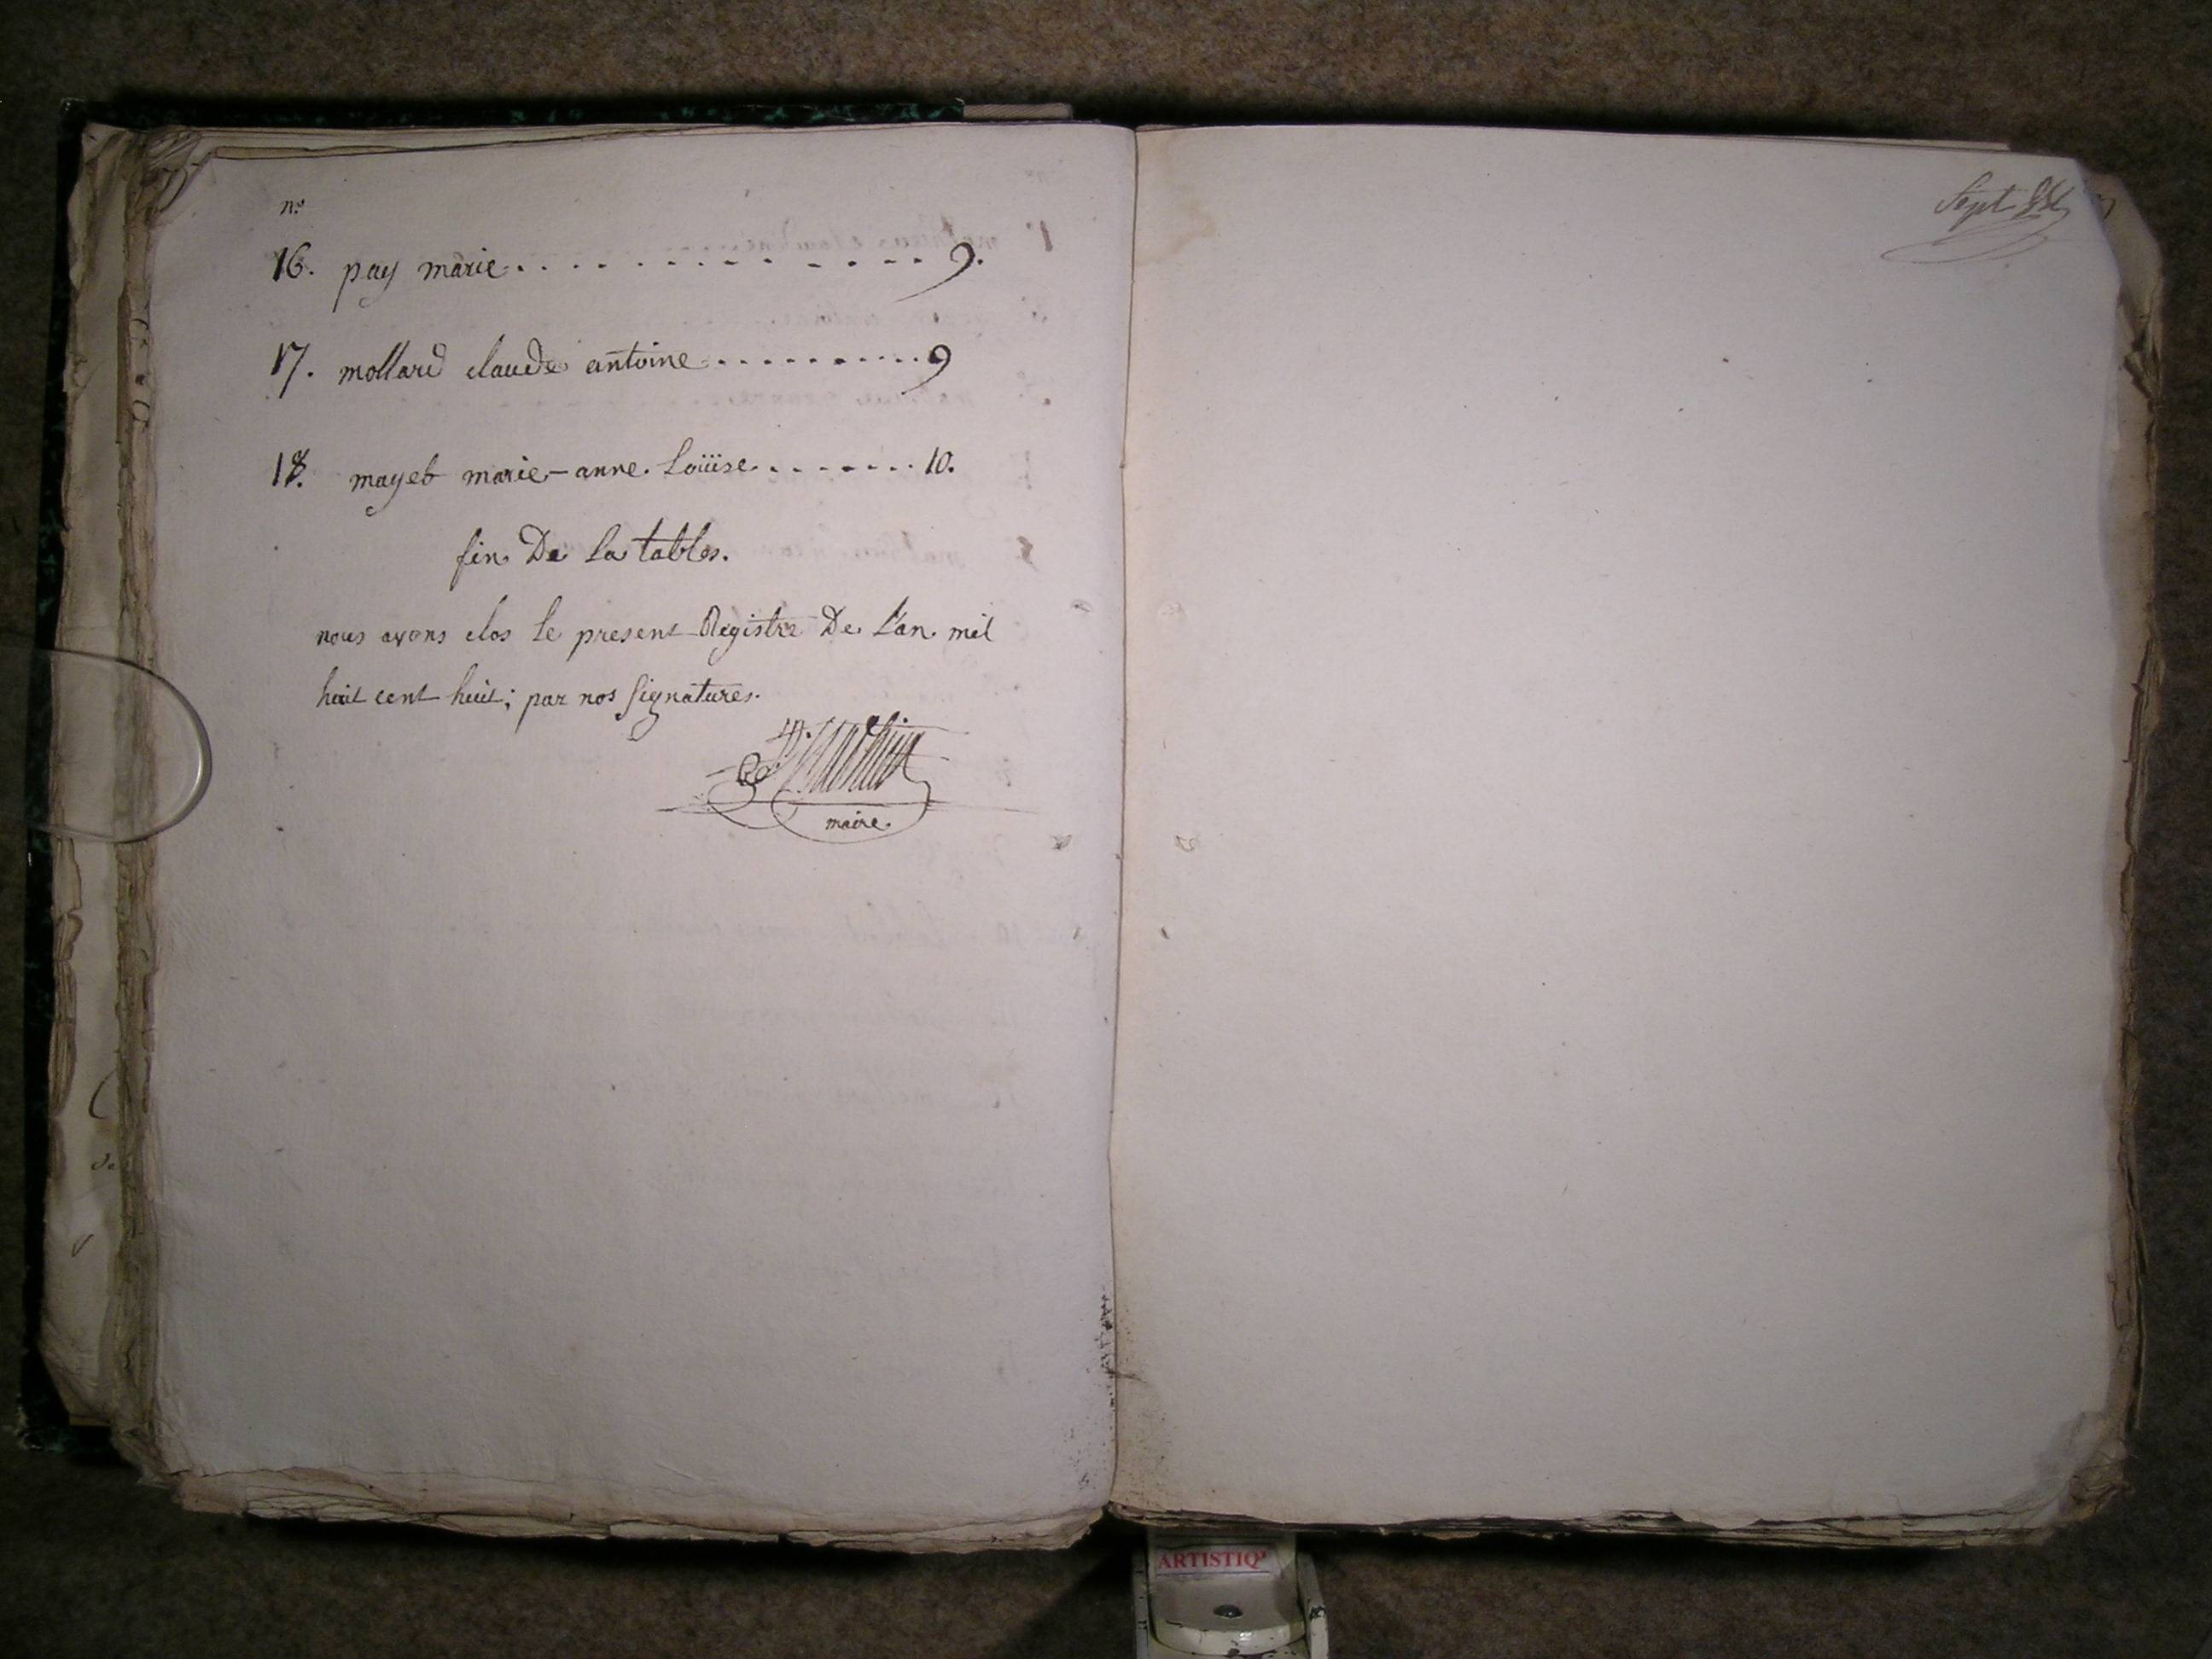 nos
16. pay marie . . . . . . . . . . . 9.
17. mollard claude antoine . . . . . . . . . . 9
18. mayet marie-anne Loüise . . . . . . . . 10.
fin De La tables.
nous avons clos le present Régistre De L'an mil
huit cent huit; par nos signatures.
maire.
Sept
ARTISTIQ'